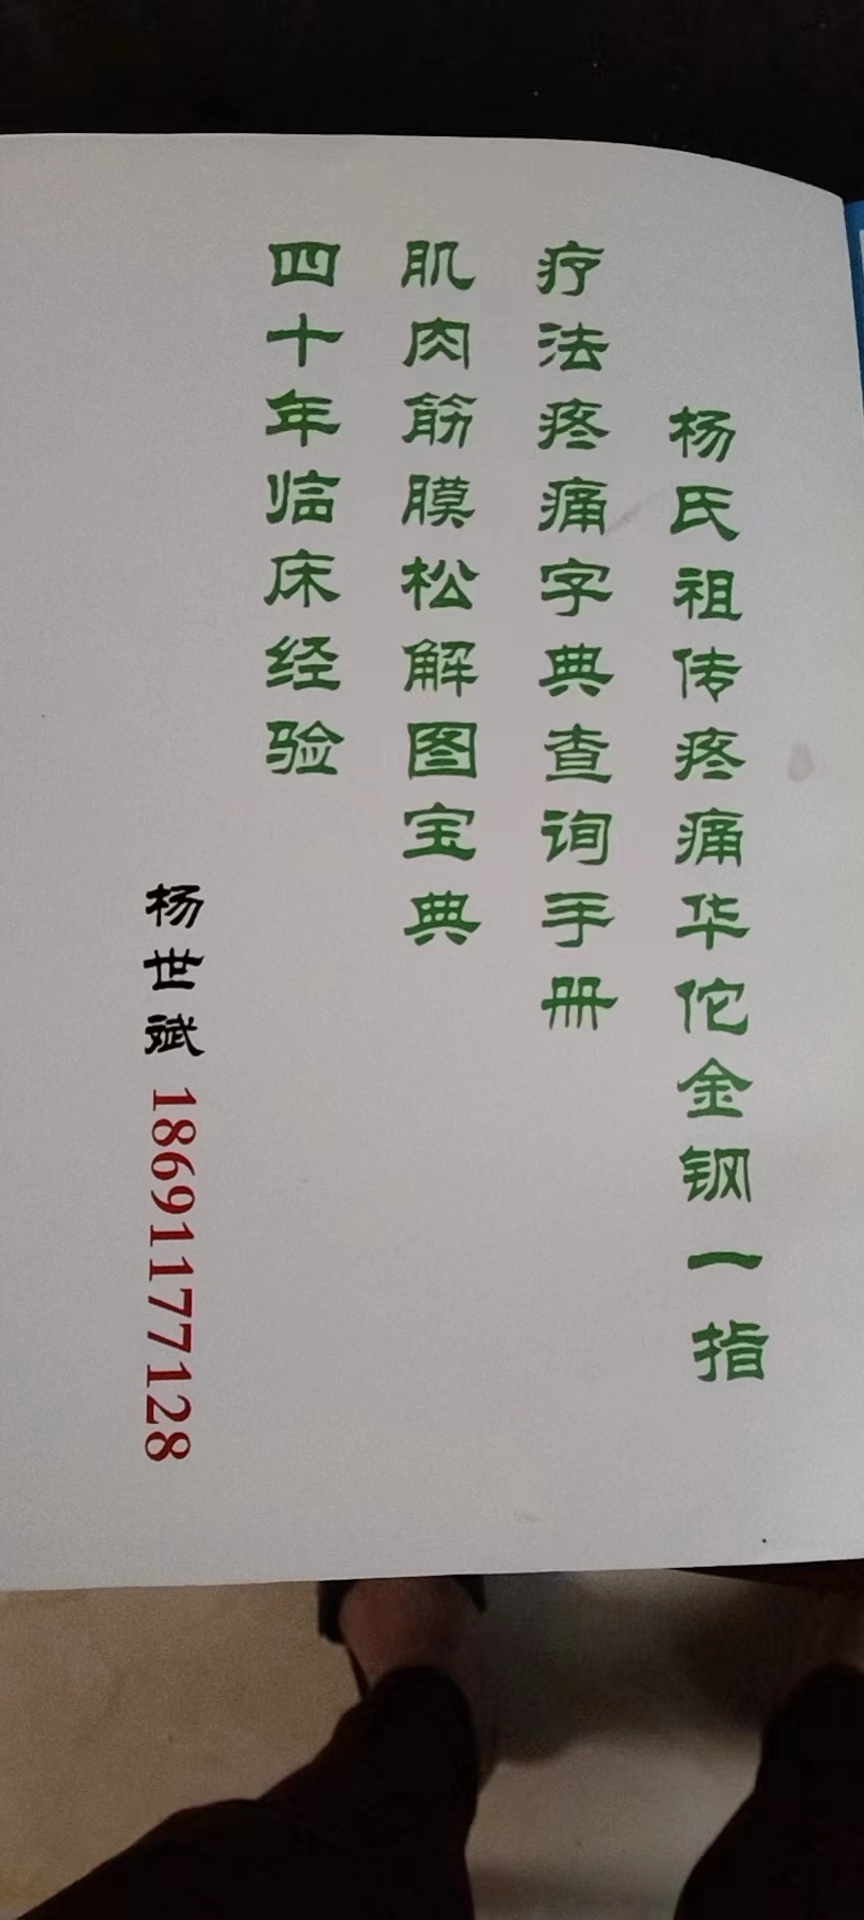 杨氏祖传疼痛华佗金钢一指
疗法疼痛字典查询手册
肌肉筋膜松解图宝典
四十年临床经验
杨世斌 18691177128